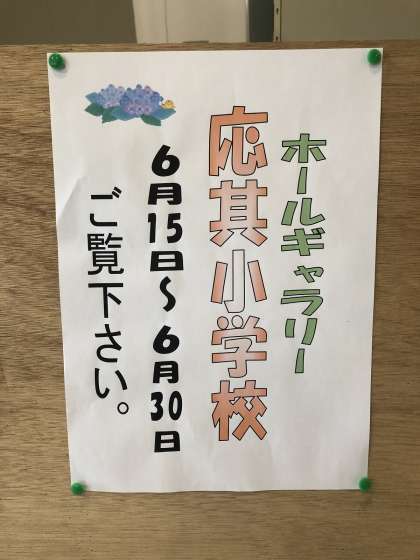 ホールギャラリー
応其小学校
6月15日～6月30日
ご覧下さい。